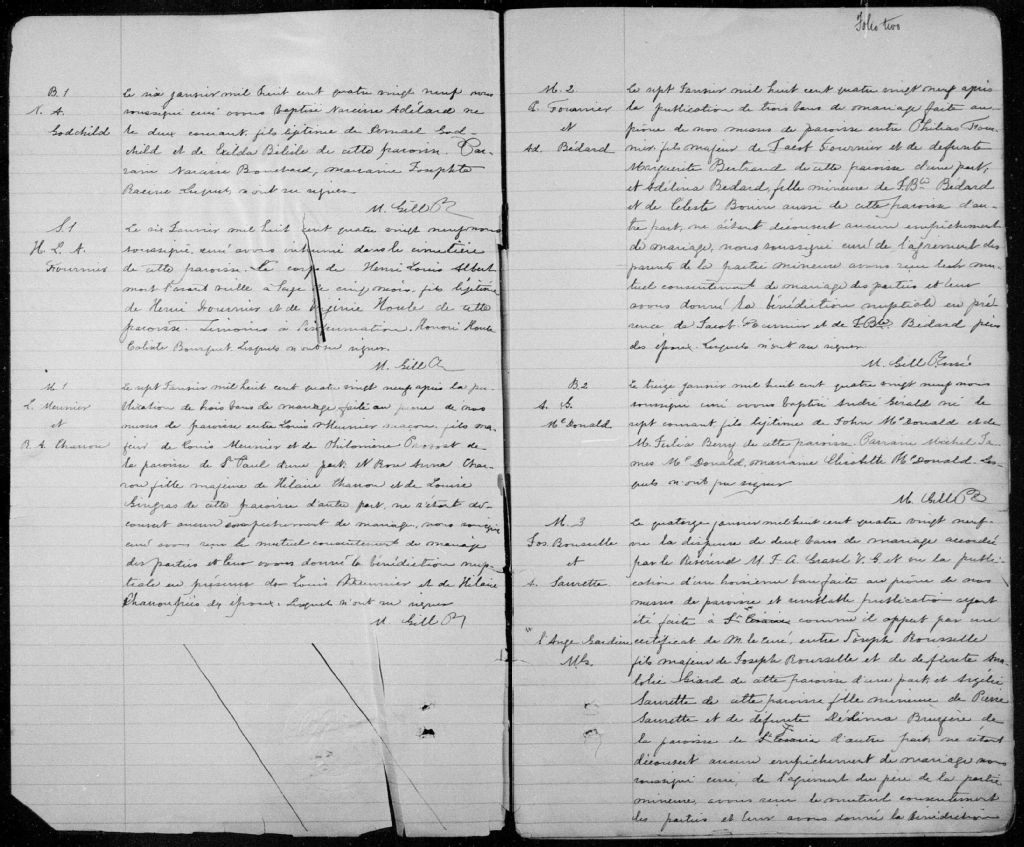 B. 1
N. A.
Godchild
Le six janvier mil huit cent quatre vingt neuf nous
soussigné curé avons baptisé Narcisse Adélard né
le deux courant, fils légitime de God-
child et de Exilda Bélisle de cette paroisse. Par-
rain Narcisse marraine Josephte
Racine. Lesquels n'ont su signer.
M. Gill
S. 1
H. L. A.
Fournier
Le six Janvier mil huit cent quatre vingt neuf nous
soussigné, curé avons inhumé dans le cimetière
de cette paroisse. Le corps de Henri Louis Albert
mort l'avant veille à l'age de cinq mois, fils légitime
de Henri Fournier et de Virginie Houle de cette
paroisse. Témoins à l'inhumation, Honoré Houle
Calixte Bourque. Lesquels n'ont su signer.
M. Gill
M. 1
L. Meunier
et
R. A. Charron
Le sept Janvier mil huit cent quatre vingt neuf après la pu-
blication de trois bans de mariage faite au prone de nos
messes de paroisse entre Louis Meunier maçon, fils ma-
jeur de Louis Meunier et de Philomène Provost de
la paroisse de St Paul d'une part et Rose Anna Char-
ron fille majeure de Hilaire Charron et de Louise
Gingras de cette paroisse d'autre part, ne s'étant dé-
couvert aucun empêchement de mariage, nous soussigné
curé avons reçu le mutuel consentement de mariage
des parties et leur avons donné la bénédiction nup-
tiale en présence de Louis Meunier et de Hilaire
Charron pères des époux. Lesquels n'ont su signer
M. Gill
Folio two
M. 2
P. Fournier
et
Ad. Bédard
Le sept Janvier mil huit cent quatre vingt neuf après
la publication de trois bans de mariage faite au
prone de nos messes de paroisse entre Philias Four-
nier, fils majeur de Jacob Fournier et de défunte
Marguerite Bertrand de cette paroisse d'une part,
et Adélina Bédard, fille mineure de J. Bte Bédard
et de Céleste Bonin aussi de cette paroisse d'au-
tre part, ne s'étant découvert aucun empêchement
de mariage, nous soussigné curé de l'agrément des
parents de la partie mineure avons reçu leur mu-
tuel consentement de mariage des parties et leur
avons donné la bénédiction nuptiale en pré-
sence de Jacob Fournier et de J. Bte Bédard pères
des époux. Lesquels n'ont su signer.
M. Gill
B. 2
A. G.
McDonald
Le treize janvier mil huit cent quatre vingt neuf nous
soussigné curé avons baptisé André Gérald né le
sept courant fils légitime de John McDonald et de
M. Julia Berry de cette paroisse. Parrain Michel Ja-
mes McDonald, marraine Elisabeth McDonald. Les-
quels n'ont pu signer
M. Gill
M. 3
Jos. Rousselle
et
A. Saurette
Le quatorze janvier mil huit cent quatre vingt neuf
vu la dispense de deux bans de mariage accordée
par le Révérend M. J. A. Gravel V. G et vu la publi-
cation d'un troisième ban faite au prone de nos
messes de paroisse et semblable publication ayant
été faite à St Césaire comme il appert par un
"l'Ange Gardien
certificat de M. le curé, entre Joseph Rousselle
fils majeur de Joseph Rousselle et de défunte
Giard de cette paroisse d'une part, et
Saurette de cette paroisse fille mineure de Pierre
Saurette et de défunte Bruyère de
la paroisse de St Césaire d'autre part, ne s'étant
découvert aucun empêchement de mariage nous
soussigné curé, de l'agrément du père de la partie
mineure, avons reçu le mutuel consentement
des parties et leur avons donné la bénédiction